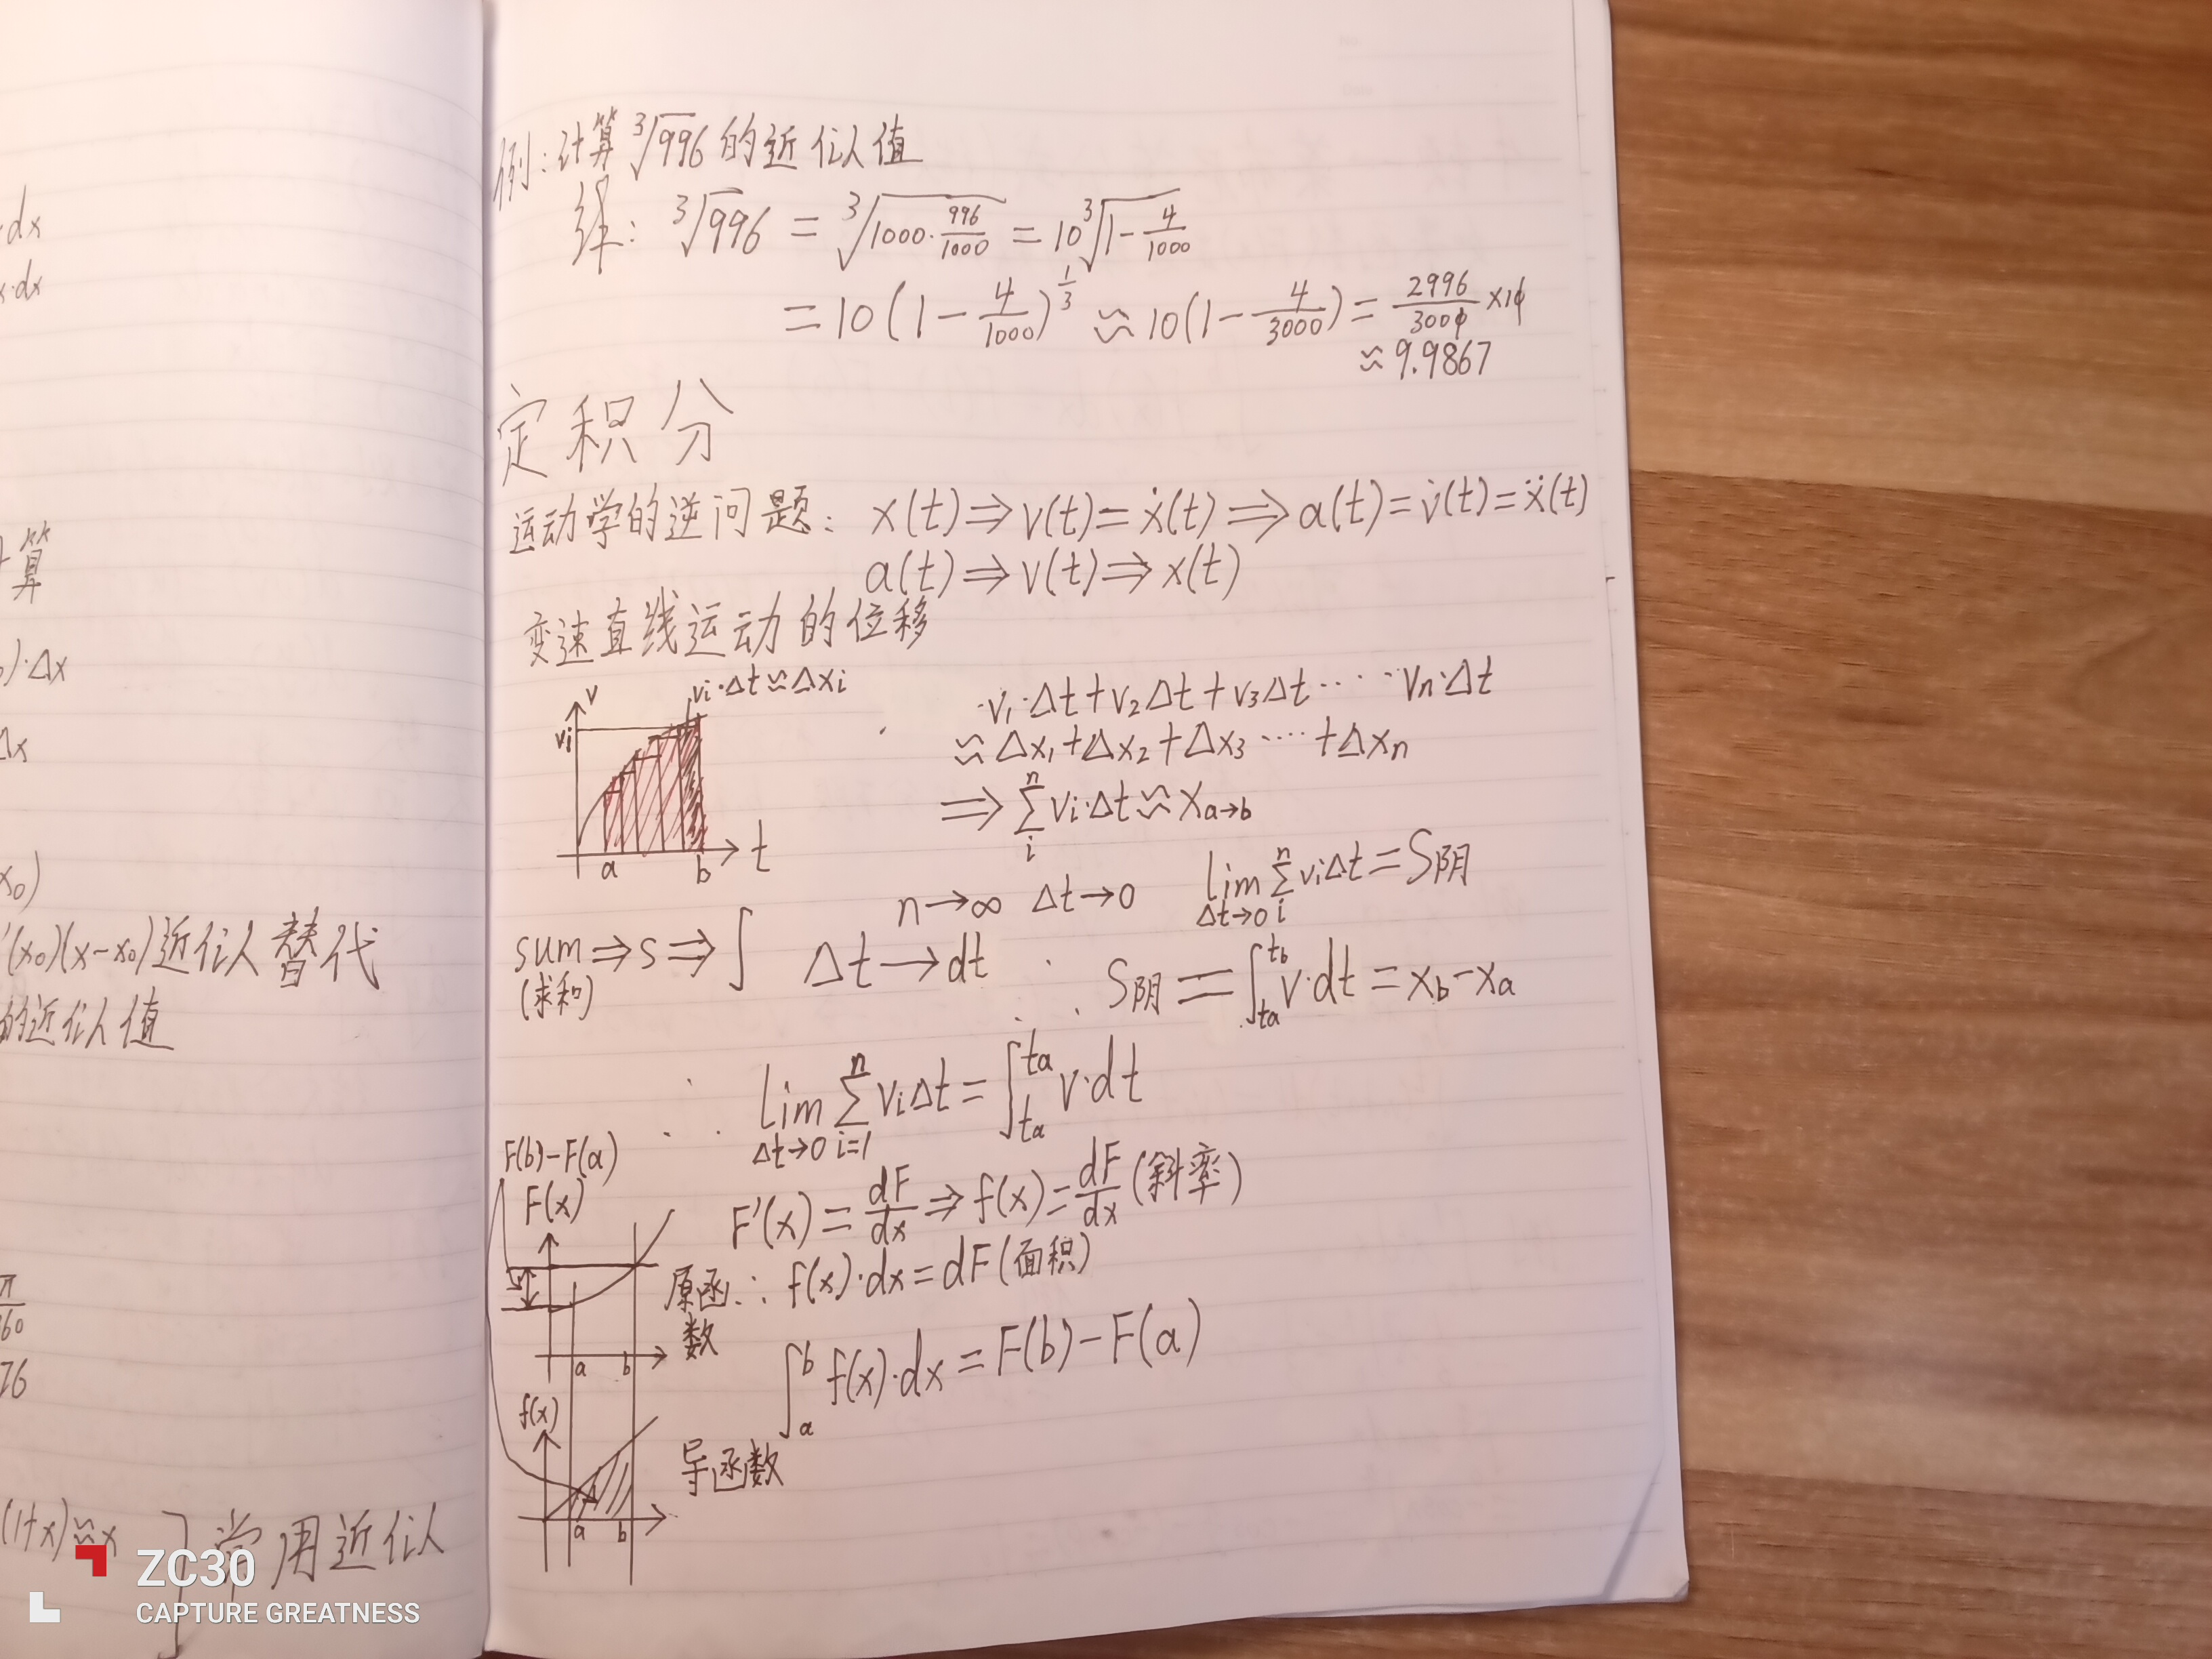 ·dx
x·dx
计算
)·Δx
Δx
x₀)
'(x₀)(x-x₀)近似替代
的近似值
π
76
(1+x)≈x
常用近似
例:计算∛996的近似值
解: ∛996 = ∛(1000·996/1000) = 10∛(1-4/1000)
=10(1-4/1000)^(1/3) ≈ 10(1-4/3000) = 2996/3000 ×10
≈9.9867
定积分
运动学的逆问题: x(t)⇒v(t)=ẋ(t)⇒a(t)=v̇(t)=ẍ(t)
a(t)⇒v(t)⇒x(t)
变速直线运动的位移
vi·Δt≈Δxi
v
vi
a b t
v₁·Δt+v₂Δt+v₃Δt·····vn·Δt
≈Δx₁+Δx₂+Δx₃····+Δxn
⇒∑ᵢⁿ vi·Δt≈Xa→b
n→∞ Δt→0 lim(Δt→0) ∑ᵢⁿ viΔt=S阴
sum⇒s⇒∫ Δt→dt ∴ S阴=∫_{ta}^{tb} v·dt=xb-xa
(求和)
∴ lim(Δt→0) ∑_{i=1}^{n} viΔt=∫_{ta}^{ta} v·dt
F(b)-F(a)
F(x)
F'(x)=dF/dx⇒f(x)=dF/dx(斜率)
原函数
∴ f(x)·dx=dF(面积)
a b
∫_a^b f(x)·dx=F(b)-F(a)
f(x)
导函数
a b
ZC30
CAPTURE GREATNESS